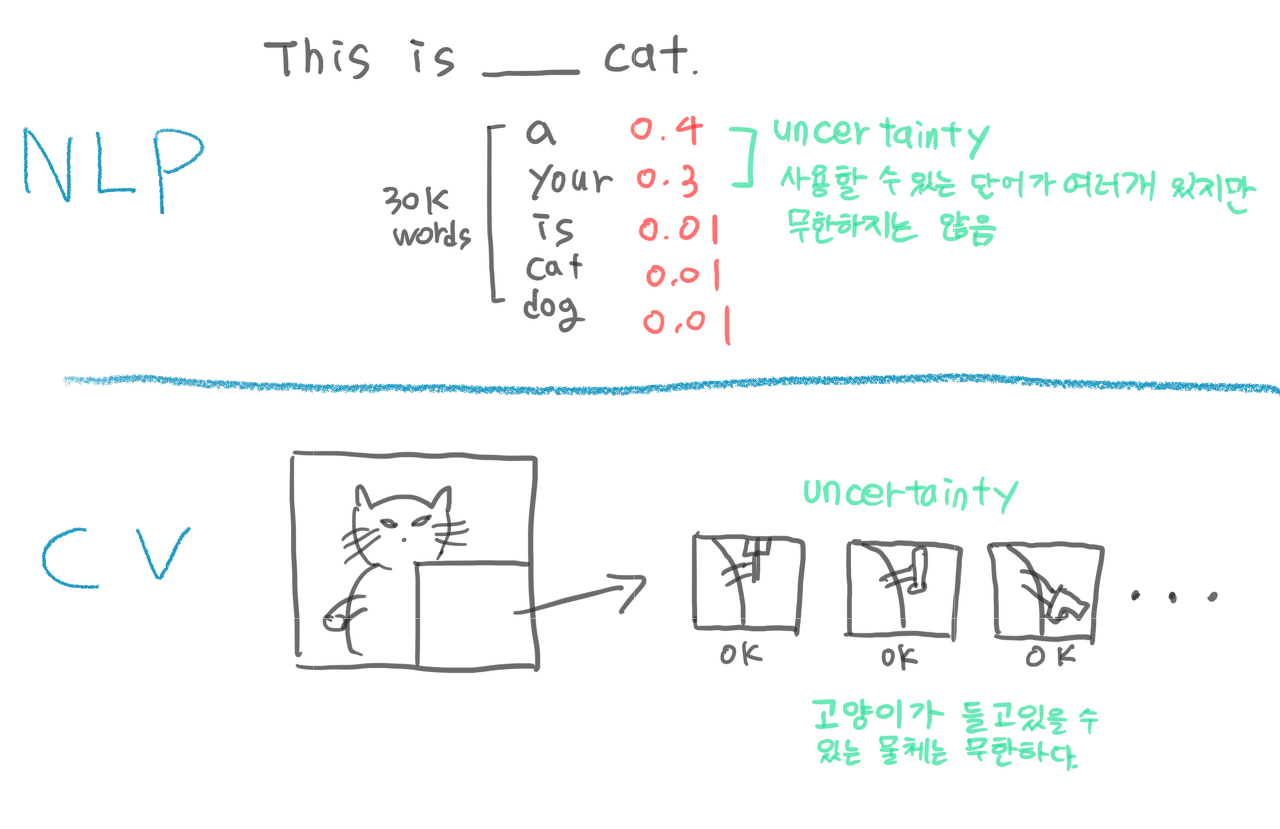 This is ___ cat.
NLP
30K
words
a 0.4
your 0.3
is 0.01
cat 0.01
dog 0.01
uncertainty
사용할 수 있는 단어가 여러개 있지만
무한하지는 않음
CV
uncertainty
OK OK OK
...
고양이가 들고있을 수
있는 물체는 무한하다.